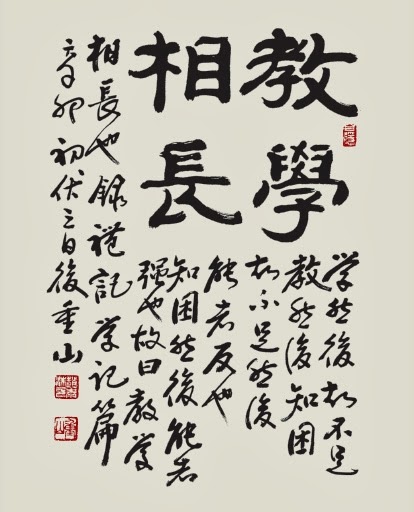 教學
相長
学然後知不足
教然後知困
知不足然後
能自反也
知困然後能自
强也故曰教学
相長也錄禮記学記篇
辛卯初伏三日後重山